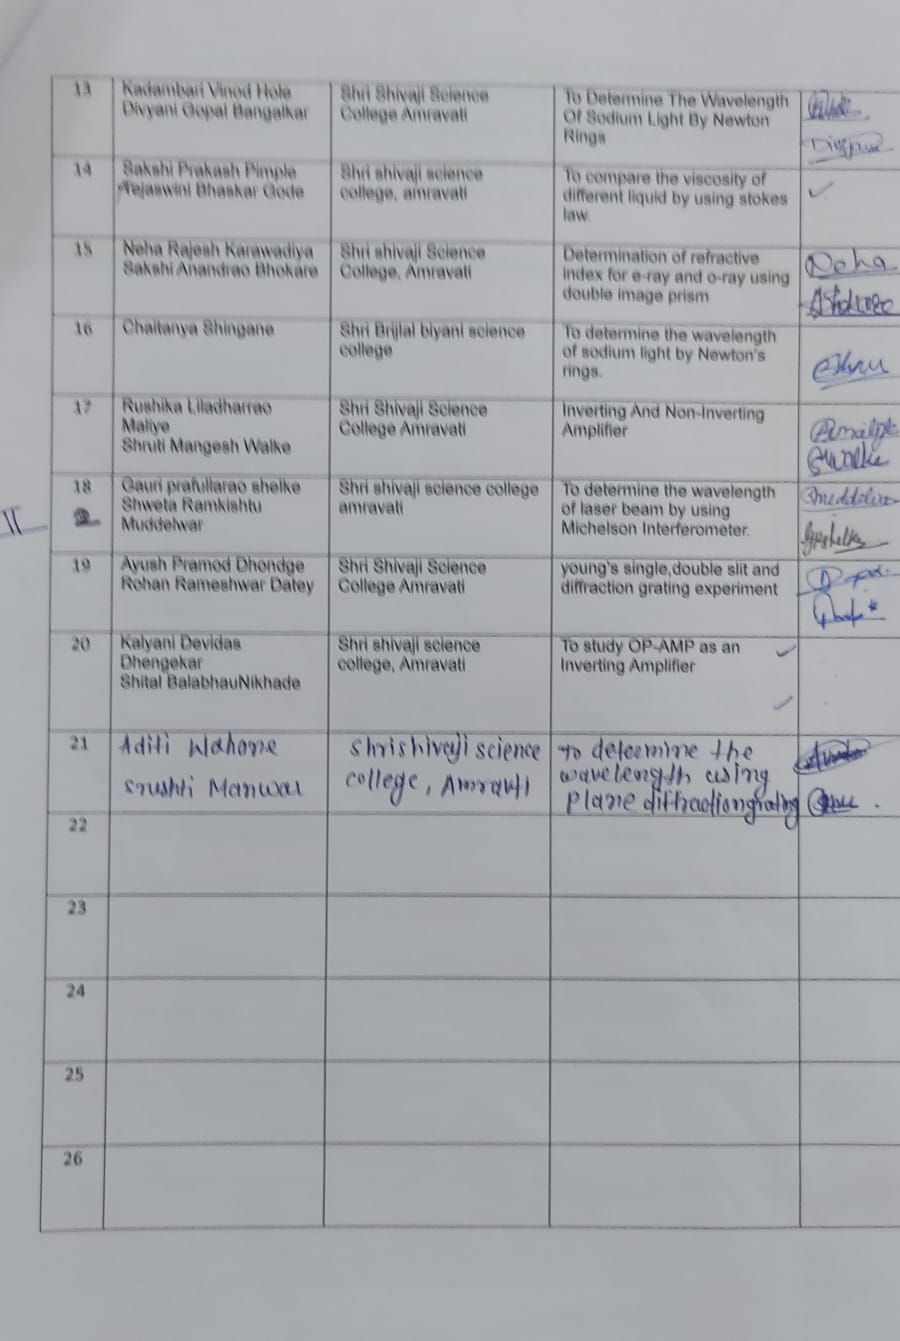 13
Kadambari Vinod Hole
Divyani Gopal Bangalkar
Shri Shivaji Science
College Amravati
To Determine The Wavelength
Of Sodium Light By Newton
Rings
14
Sakshi Prakash Pimple
Tejaswini Bhaskar Gode
Shri shivaji science
college, amravati
To compare the viscosity of
different liquid by using stokes
law.
15
Neha Rajesh Karawadiya
Sakshi Anandrao Bhokare
Shri shivaji Science
College, Amravati
Determination of refractive
index for e-ray and o-ray using
double image prism
Neha
16
Chaitanya Shingane
Shri Brijlal biyani science
college
To determine the wavelength
of sodium light by Newton's
rings.
17
Rushika Liladharrao
Maliye
Shruti Mangesh Walke
Shri Shivaji Science
College Amravati
Inverting And Non-Inverting
Amplifier
II
18
Gauri prafullarao shelke
Shweta Ramkishtu
Muddelwar
Shri shivaji science college
amravati
To determine the wavelength
of laser beam by using
Michelson Interferometer.
19
Ayush Pramod Dhondge
Rohan Rameshwar Datey
Shri Shivaji Science
College Amravati
young's single,double slit and
diffraction grating experiment
20
Kalyani Devidas
Dhengekar
Shital BalabhauNikhade
Shri shivaji science
college, Amravati
To study OP-AMP as an
Inverting Amplifier
21
Aditi Wahane
Srushti Manwar
Shri shivaji science
college, Amravti
To determine the
wavelength using
plane diffraction grating
22
23
24
25
26